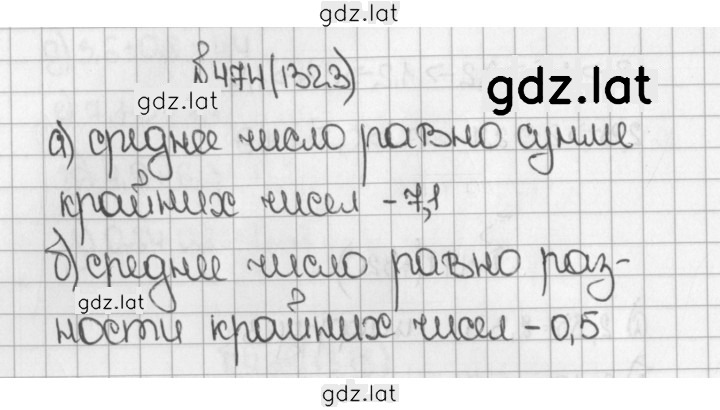 gdz.lat
№474(1323)
gdz.lat
gdz.lat
а) среднее число равно сумме
крайних чисел - 7,1
б) среднее число равно раз-
gdz.lat
ности крайних чисел - 0,5
gdz.lat